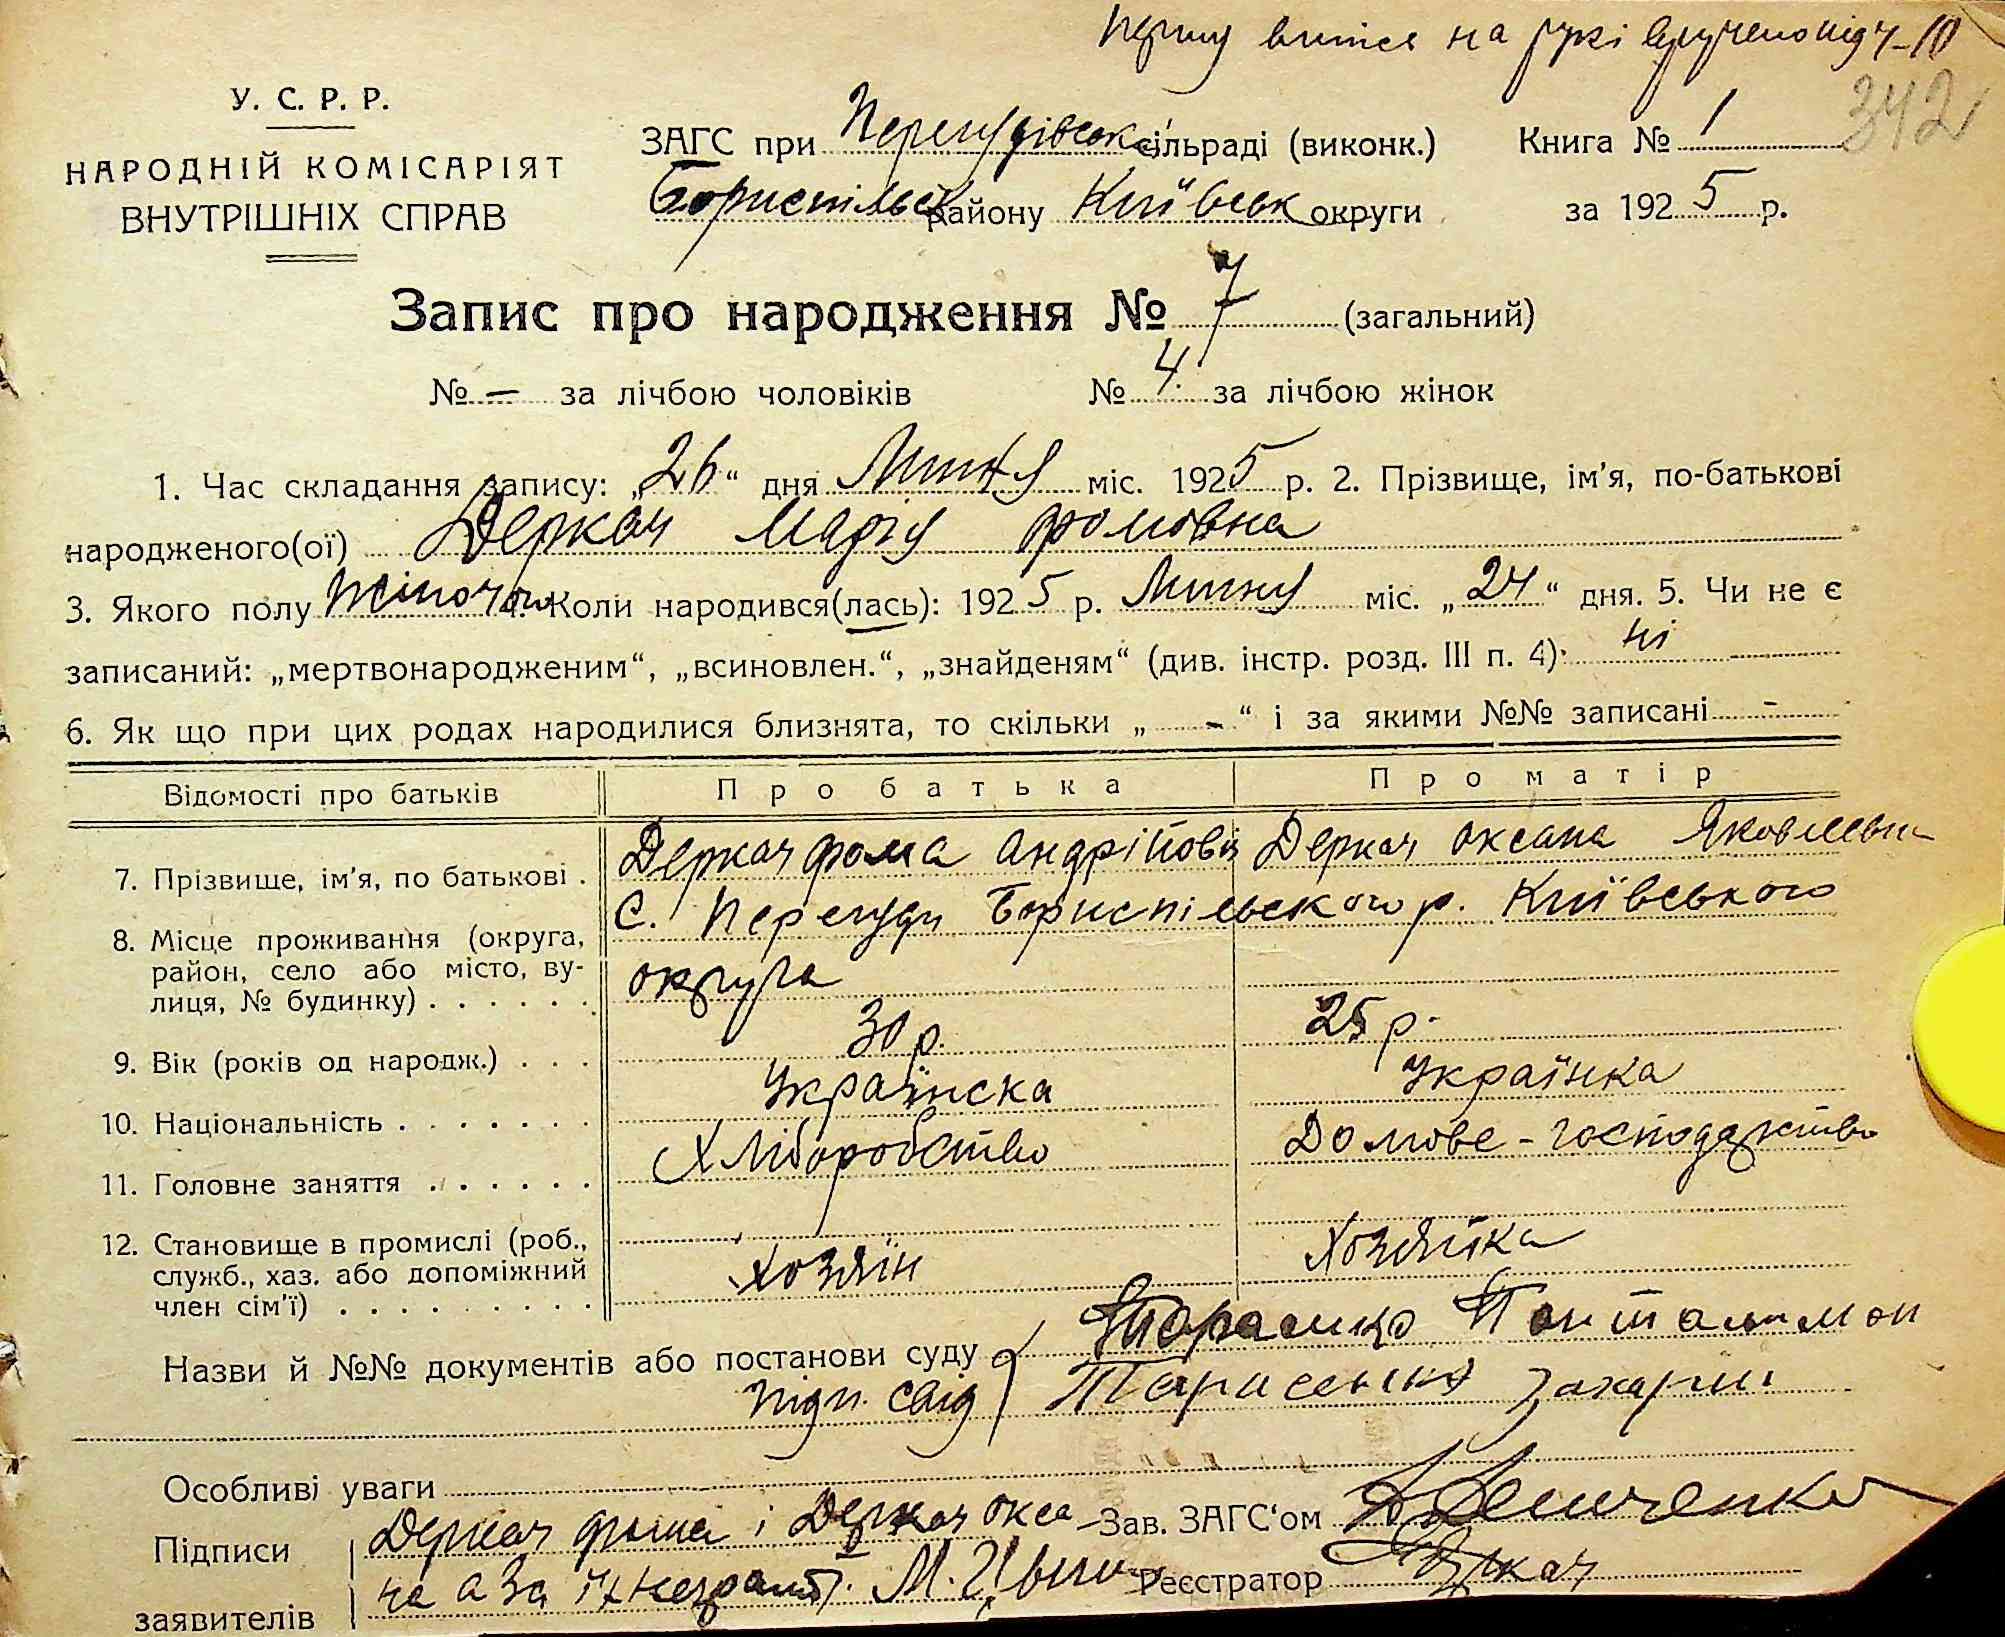 Першу виписк на рукі вручено під ч-10
342
У. С. Р. Р.
НАРОДНІЙ КОМІСАРІЯТ
ВНУТРІШНІХ СПРАВ
ЗАГС при Перегудівськ сільраді (виконк.)
Бориспільск району Київськ округи
Книга № 1
за 1925 р.
Запис про народження № 7 (загальний)
№ — за лічбою чоловіків № 4. за лічбою жінок
1. Час складання запису: „26“ дня Липня міс. 1925 р. 2. Прізвище, ім'я, по-батькові
народженого(ої) Деркач Марія Фомовна
3. Якого полу жіночого 4. Коли народився(лась): 1925 р. Липня міс. „24“ дня. 5. Чи не є
записаний: „мертвонародженим“, „всиновлен.“, „знайденям“ (див. інстр. розд. III п. 4): ні
6. Як що при цих родах народилися близнята, то скільки „ - “ і за якими №№ записані -
Відомості про батьків Про батька Про матір
7. Прізвище, ім'я, по батькові . Деркач Фома Андрійові Деркач Оксана Яковлевн
8. Місце проживання (округа, С. Перегуди Бориспільського р. Київського
район, село або місто, ву- округа
лиця, № будинку) . . . . . .
9. Вік (років од народж.) . . . 30 р. 25 р.
10. Національність . . . . . . . Українска Українка
11. Головне заняття . . . . . . Хліборобство Домове-господарство
12. Становище в промислі (роб.,
служб., хаз. або допоміжний Хозяїн Хозяйка
член сім'ї) . . . . . . . . .
Назви й №№ документів або постанови суду Пантелимон
підп. свід Тарасенко Захарій
Особливі уваги
Підписи Деркач Фома і Деркач Окса Зав. ЗАГС'ом
заявителів на а за їх неграмот. М. Реєстратор Деркач